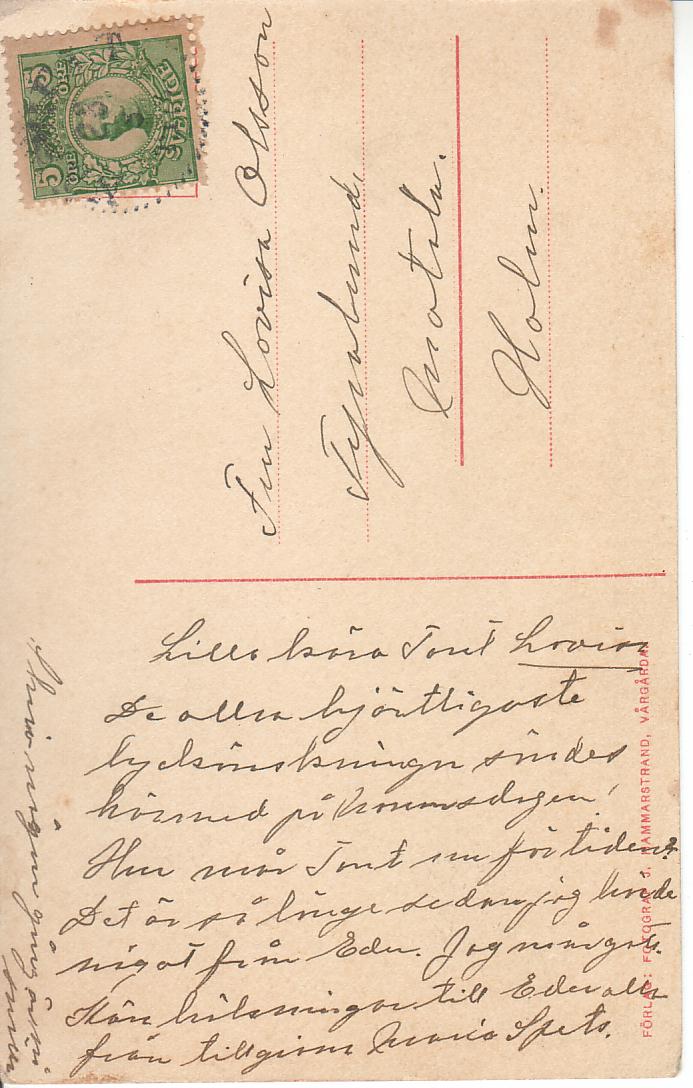 5 ÖRE
ÖRE 5
SVERIGE
Fru Lovisa Olsson
Motala.
Holm.
Lilla kära Tant Lovisa
De allra hjärtligaste
lyckönskningar sändes
härmed på namnsdagen!
Hur mår Tant nu för tiden?
Det är så länge sedan jag hörde
något från Eder. Jag mår gott.
Kära hälsningar till Eder alla
från tillgivna Maria Spets.
Skriv någon gång är ni
snälla
FÖRLAG: FOTOGRAF J. HAMMARSTRAND, VÅRGÅRDA.